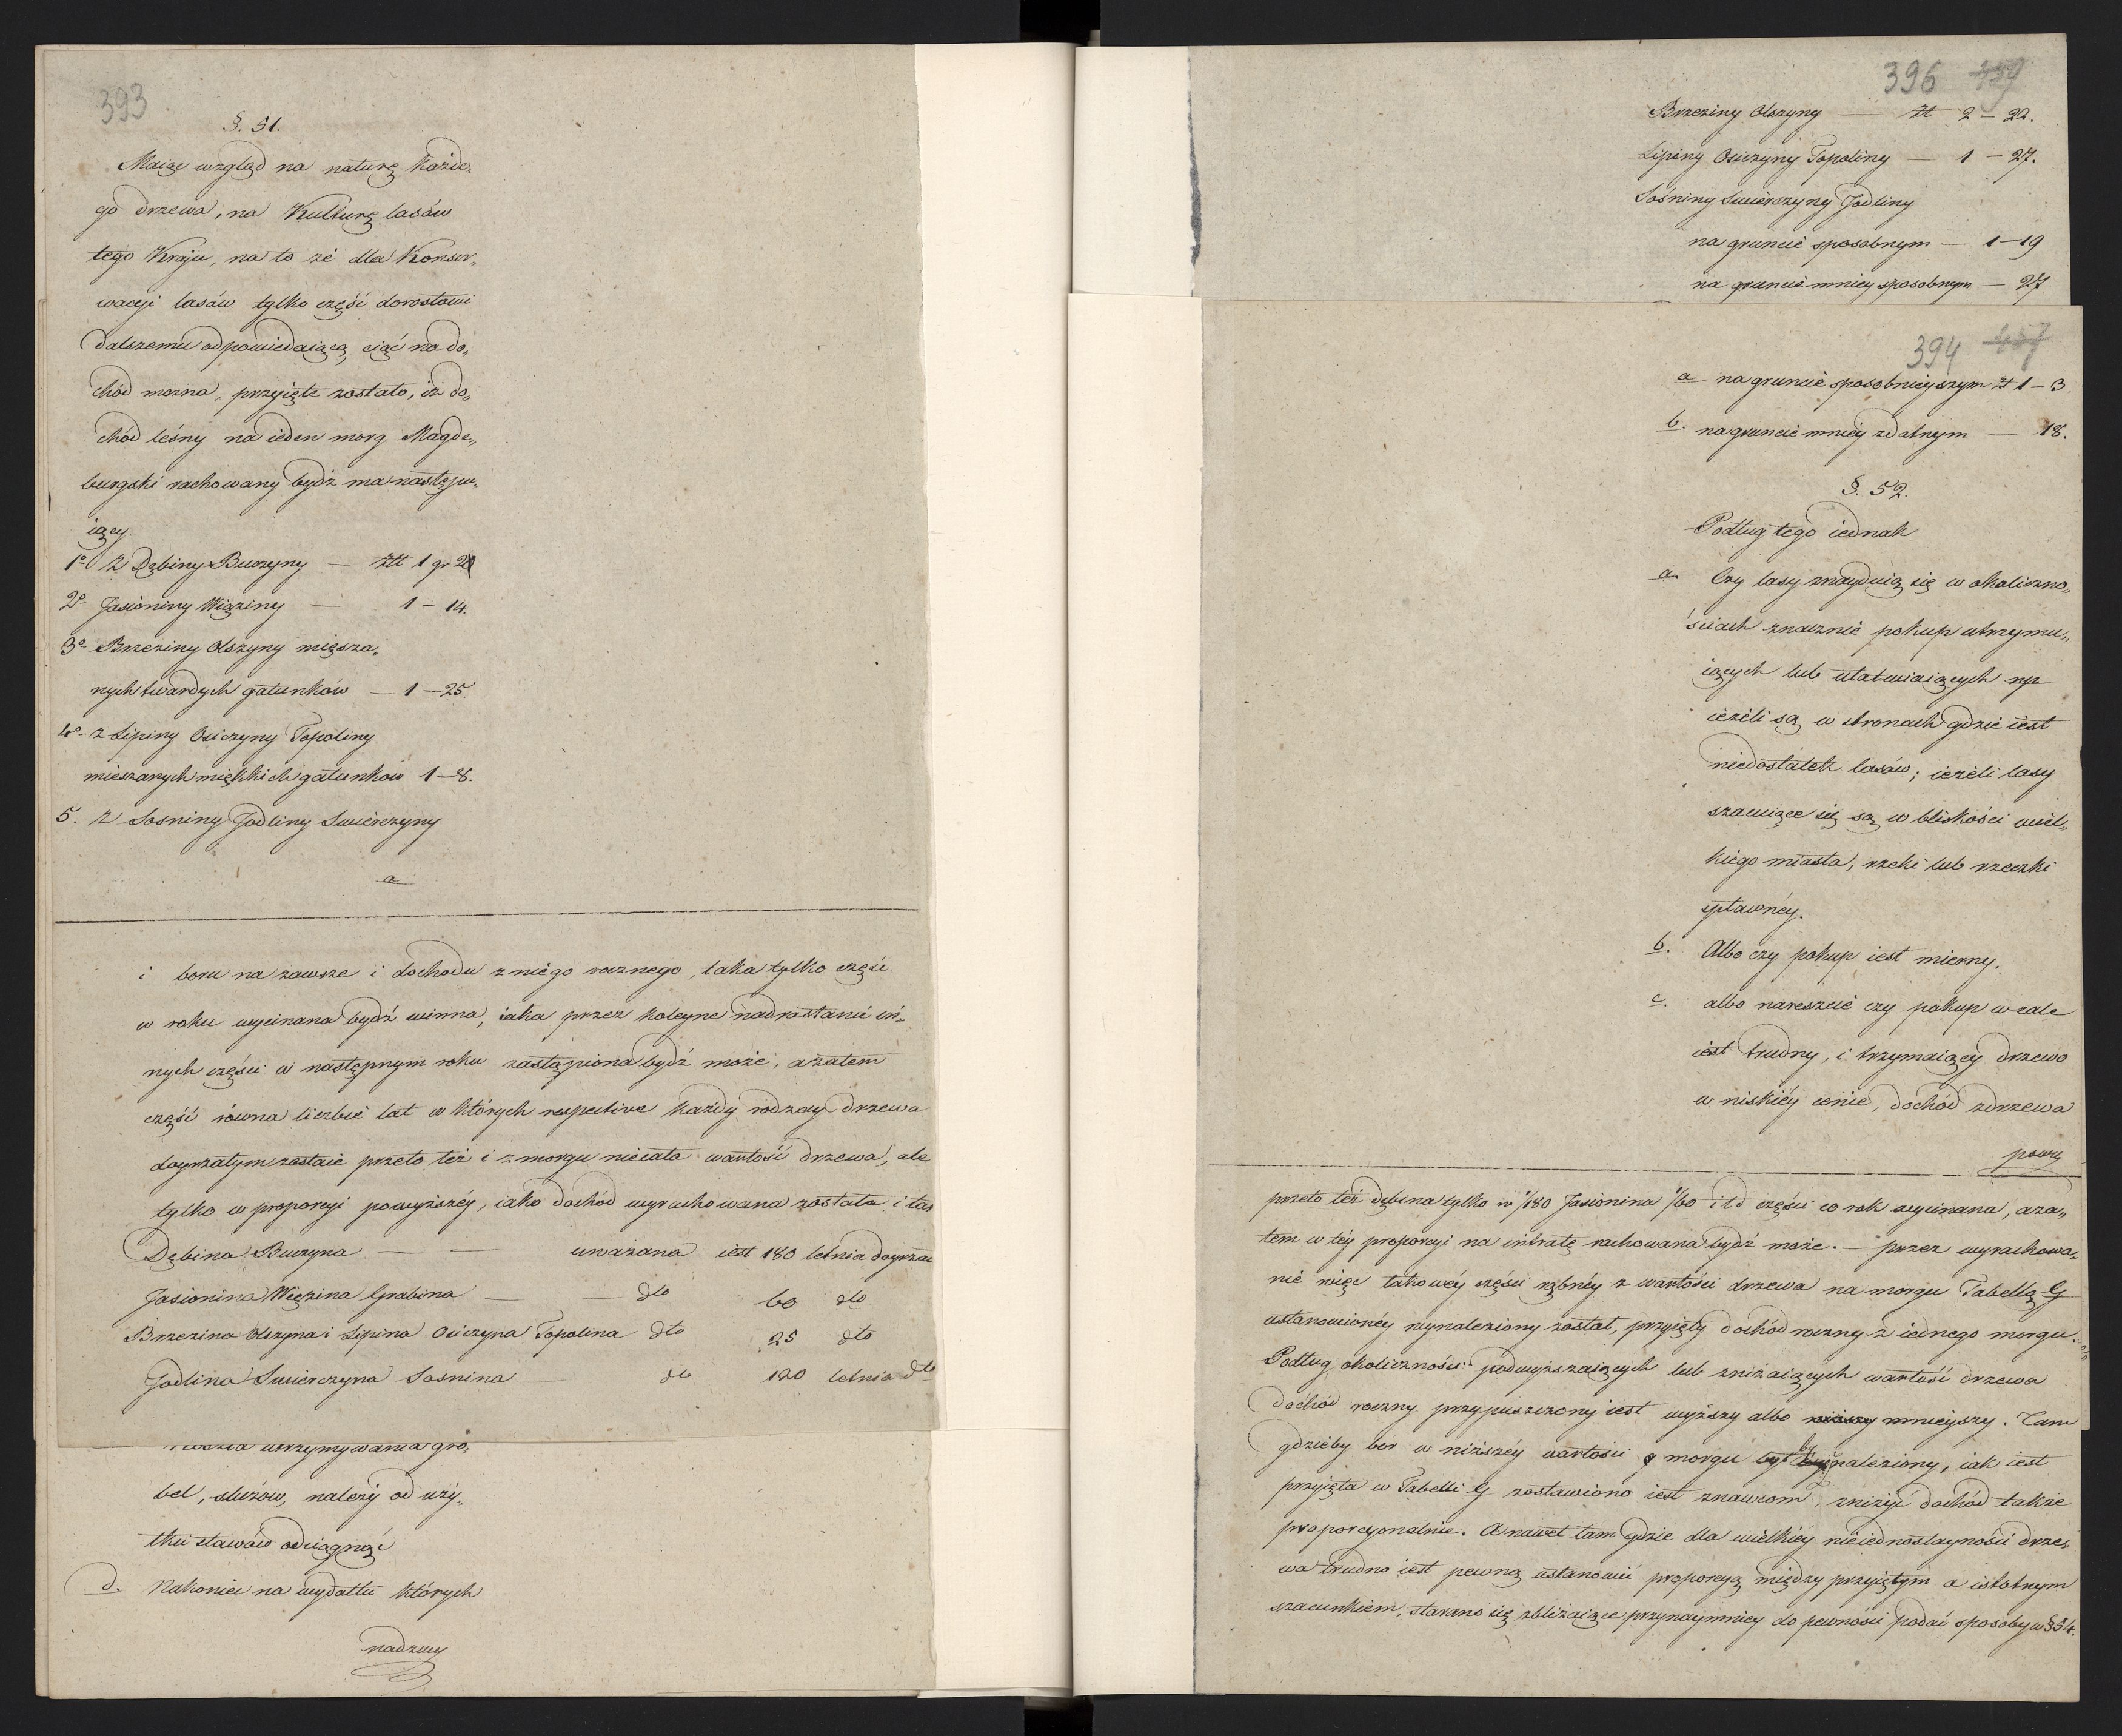 393
§. 51.
Maiąc wzgląd na naturę każde„
go drzewa, na Kulturę lasów
tego Kraju, na to że dla Konser„
wacyi lasów tylko część dorostowi
dalszemu odpowiedaiącą ciąć na do„
chód można, przyięte zostało, iż do„
chód leśny na ieden morg Magde„
burgski rachowany bydź ma następu„
iący.
1° Z Dębiny Buczyny — Złt 1 gr
2° Jasioniny Wiąziny — 1 – 14.
3° Brzeziny Olszyny mięsza„
nych twardych gatunków — 1 – 25.
4° z Lipiny Osiczyny Topoliny
mieszanych miękkich gatunków 1 – 8.
5. Z Sosniny Jodliny Swierczyny
a
i boru na zawsze i dochodu z niego rocznego, taka tylko część
w roku wycinana bydź winna, iaka przez koleyne nadrastanie in„
nych części w następnym roku zastąpiona bydź może, a zatem
część równa liczbie lat w których respective każdy rodzay drzewa
doyrzałym zostaie przeto też i z morgu nie cała wartość drzewa, ale
tylko w proporcyi powyższéy, iako dochód wyrachowana została i tak
Dębina Buczyna — — uważana iest 180 letnia doyrzał
Jasionina Więzina Grabina — — dto 60 dto
Brzezina Olszyna i Lipina Osiczyna Topolina dto 25 dto
Jodlina Swierczyna Sosnina — dto 120 letnia dto
utrzymywania gro„
bel, sluzów, należy od uży„
tku stawów odciągnąć
d. Nakoniec na wydatki których
396
Brzeziny Olszyny — Zł 2 – 22.
Lipiny Osiczyny Topoliny — 1 – 27.
Sośniny Swierczyny Jodliny
na gruncie sposobnym — 1 – 19
na gruncie mniey sposobnym — 27
394 457
a na gruncie sposobnieyszym zł 1 – 3
b. na gruncie mniéy zdatnym — 18.
§. 52.
Podług tego iednak
a. Czy lasy znayduią się w okoliczno„
ściach znacznie pokup utrzymu„
iących lub ułatwiaiących np
ieżéli są w stronach gdzie iest
niedostátek lasów; ieżéli lasy
szacuiące się są w bliskości wiel„
kiego miasta, rzeki lub rzeczki
spławnéy.
b. Albo czy pokup iest mierny.
c. albo nareszcie czy pokup wcale
iest trudny, i trzymaiący drzewo
w niskiéy cenie, dochód z drzewa
powy
przeto też dębina tylko w 1/180 Jasionina 1/60 i td części co rok wycinana, aza„
tem w téy proporcyi na intratę rachowana bydź może. — przez wyrachowa„
nie więc takowéy części rębnéy z wartości drzewa na morgu Tabellą G
ustanowionéy wynaleziony został, przyięty dochód roczny z iednego morgu.
Podług okoliczności podwyższaiących lub zniżaiących wartość drzewa
dochód roczny przypuszczony iest wyższy albo mnieyszy. Tam
gdzieby bor w niższéy wartości morgu był wynaleziony, iak iest
przyięta w Tabelli G zostawiono iest znawcom zniżyć dochód także
proporcyonalnie. A nawet tam gdzie dla wielkiéy nieiednostayności drze„
wa trudno iest pewną ustanowić proporcyą między przyiętym a istotnym
szacunkiem, starano się zbliżaiące przynaymniey do pewności podać sposoby w § 54.